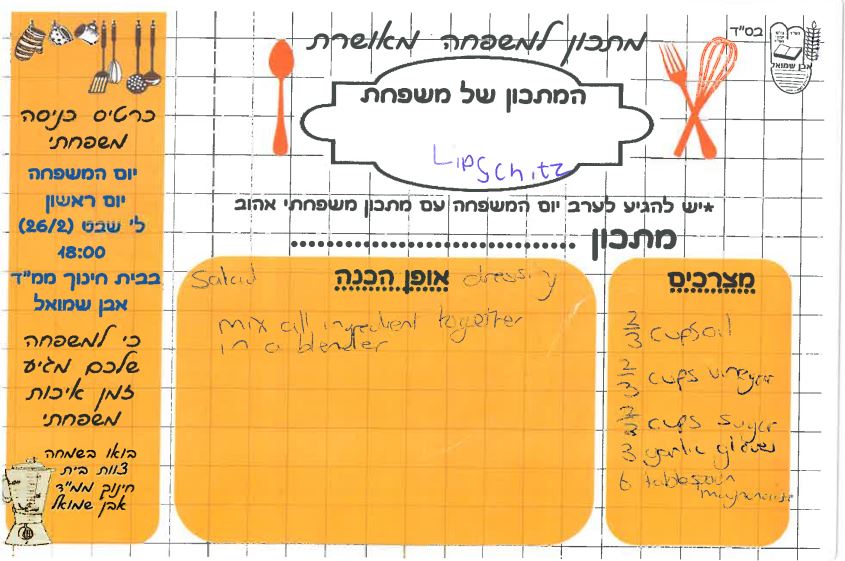 בס"ד
אבן שמואל
מתכון למשפחה מאושרת
המתכון של משפחת
Lipschitz
*יש להגיע לערב יום המשפחה עם מתכון משפחתי אהוב
מתכון ................................
מצרכים
2/3 cups oil
2/3 cups vinegar
2/3 cups sugar
3 garlic gloves
6 tablespoon
mayonaise
אופן הכנה
Salad dressing
mix all ingredient together
in a blender
כרטיס כניסה
משפחתי
יום המשפחה
יום ראשון
ל' שבט (26/2)
18:00
בבית חינוך ממ"ד
אבן שמואל
כי למשפחה
שלכם מגיע
זמן איכות
משפחתי
בואו בשמחה
צוות בית
חינוך ממ"ד
אבן שמואל